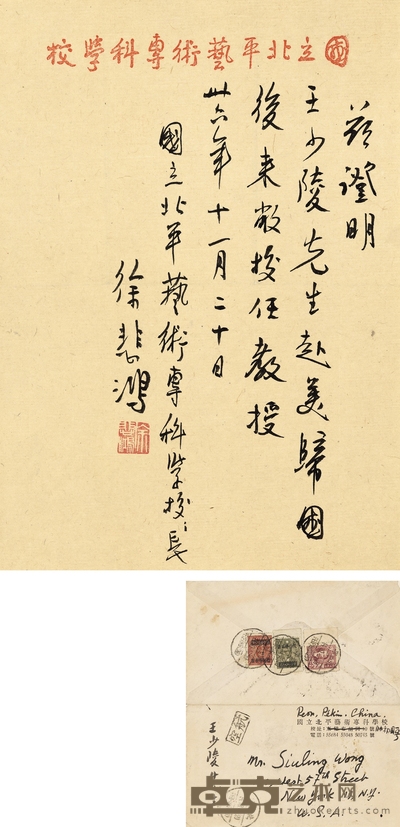 國立北平藝術專科學校
兹證明
王少陵先生赴美歸國
後来敝校任教授
卅六年十一月二十日
國立北平藝術專科學校校長
徐悲鴻
Peon, Pekin. China
國立北平藝術專科學校
王少陵
Mr. Siuling Wong
West 57th Street
New York N.Y.
U.S.A
卓克艺术网